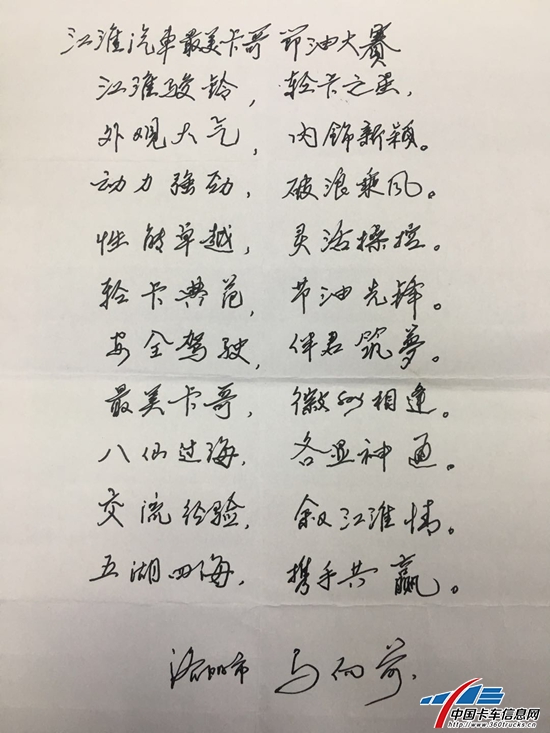 江淮汽車最美卡哥 节油大賽
江淮骏铃，轻卡之星，
外观大气，内饰新颖。
动力强劲，破浪乘风。
性能卓越，灵活操控。
轻卡典范，节油先锋。
安全驾驶，伴君筑夢。
最美卡哥，徽州相逢。
八仙过海，各显神通。
交流经验，叙江淮情。
五湖四海，携手共赢。
洛阳市 马向前.
中国卡车信息网
www.360trucks.cn